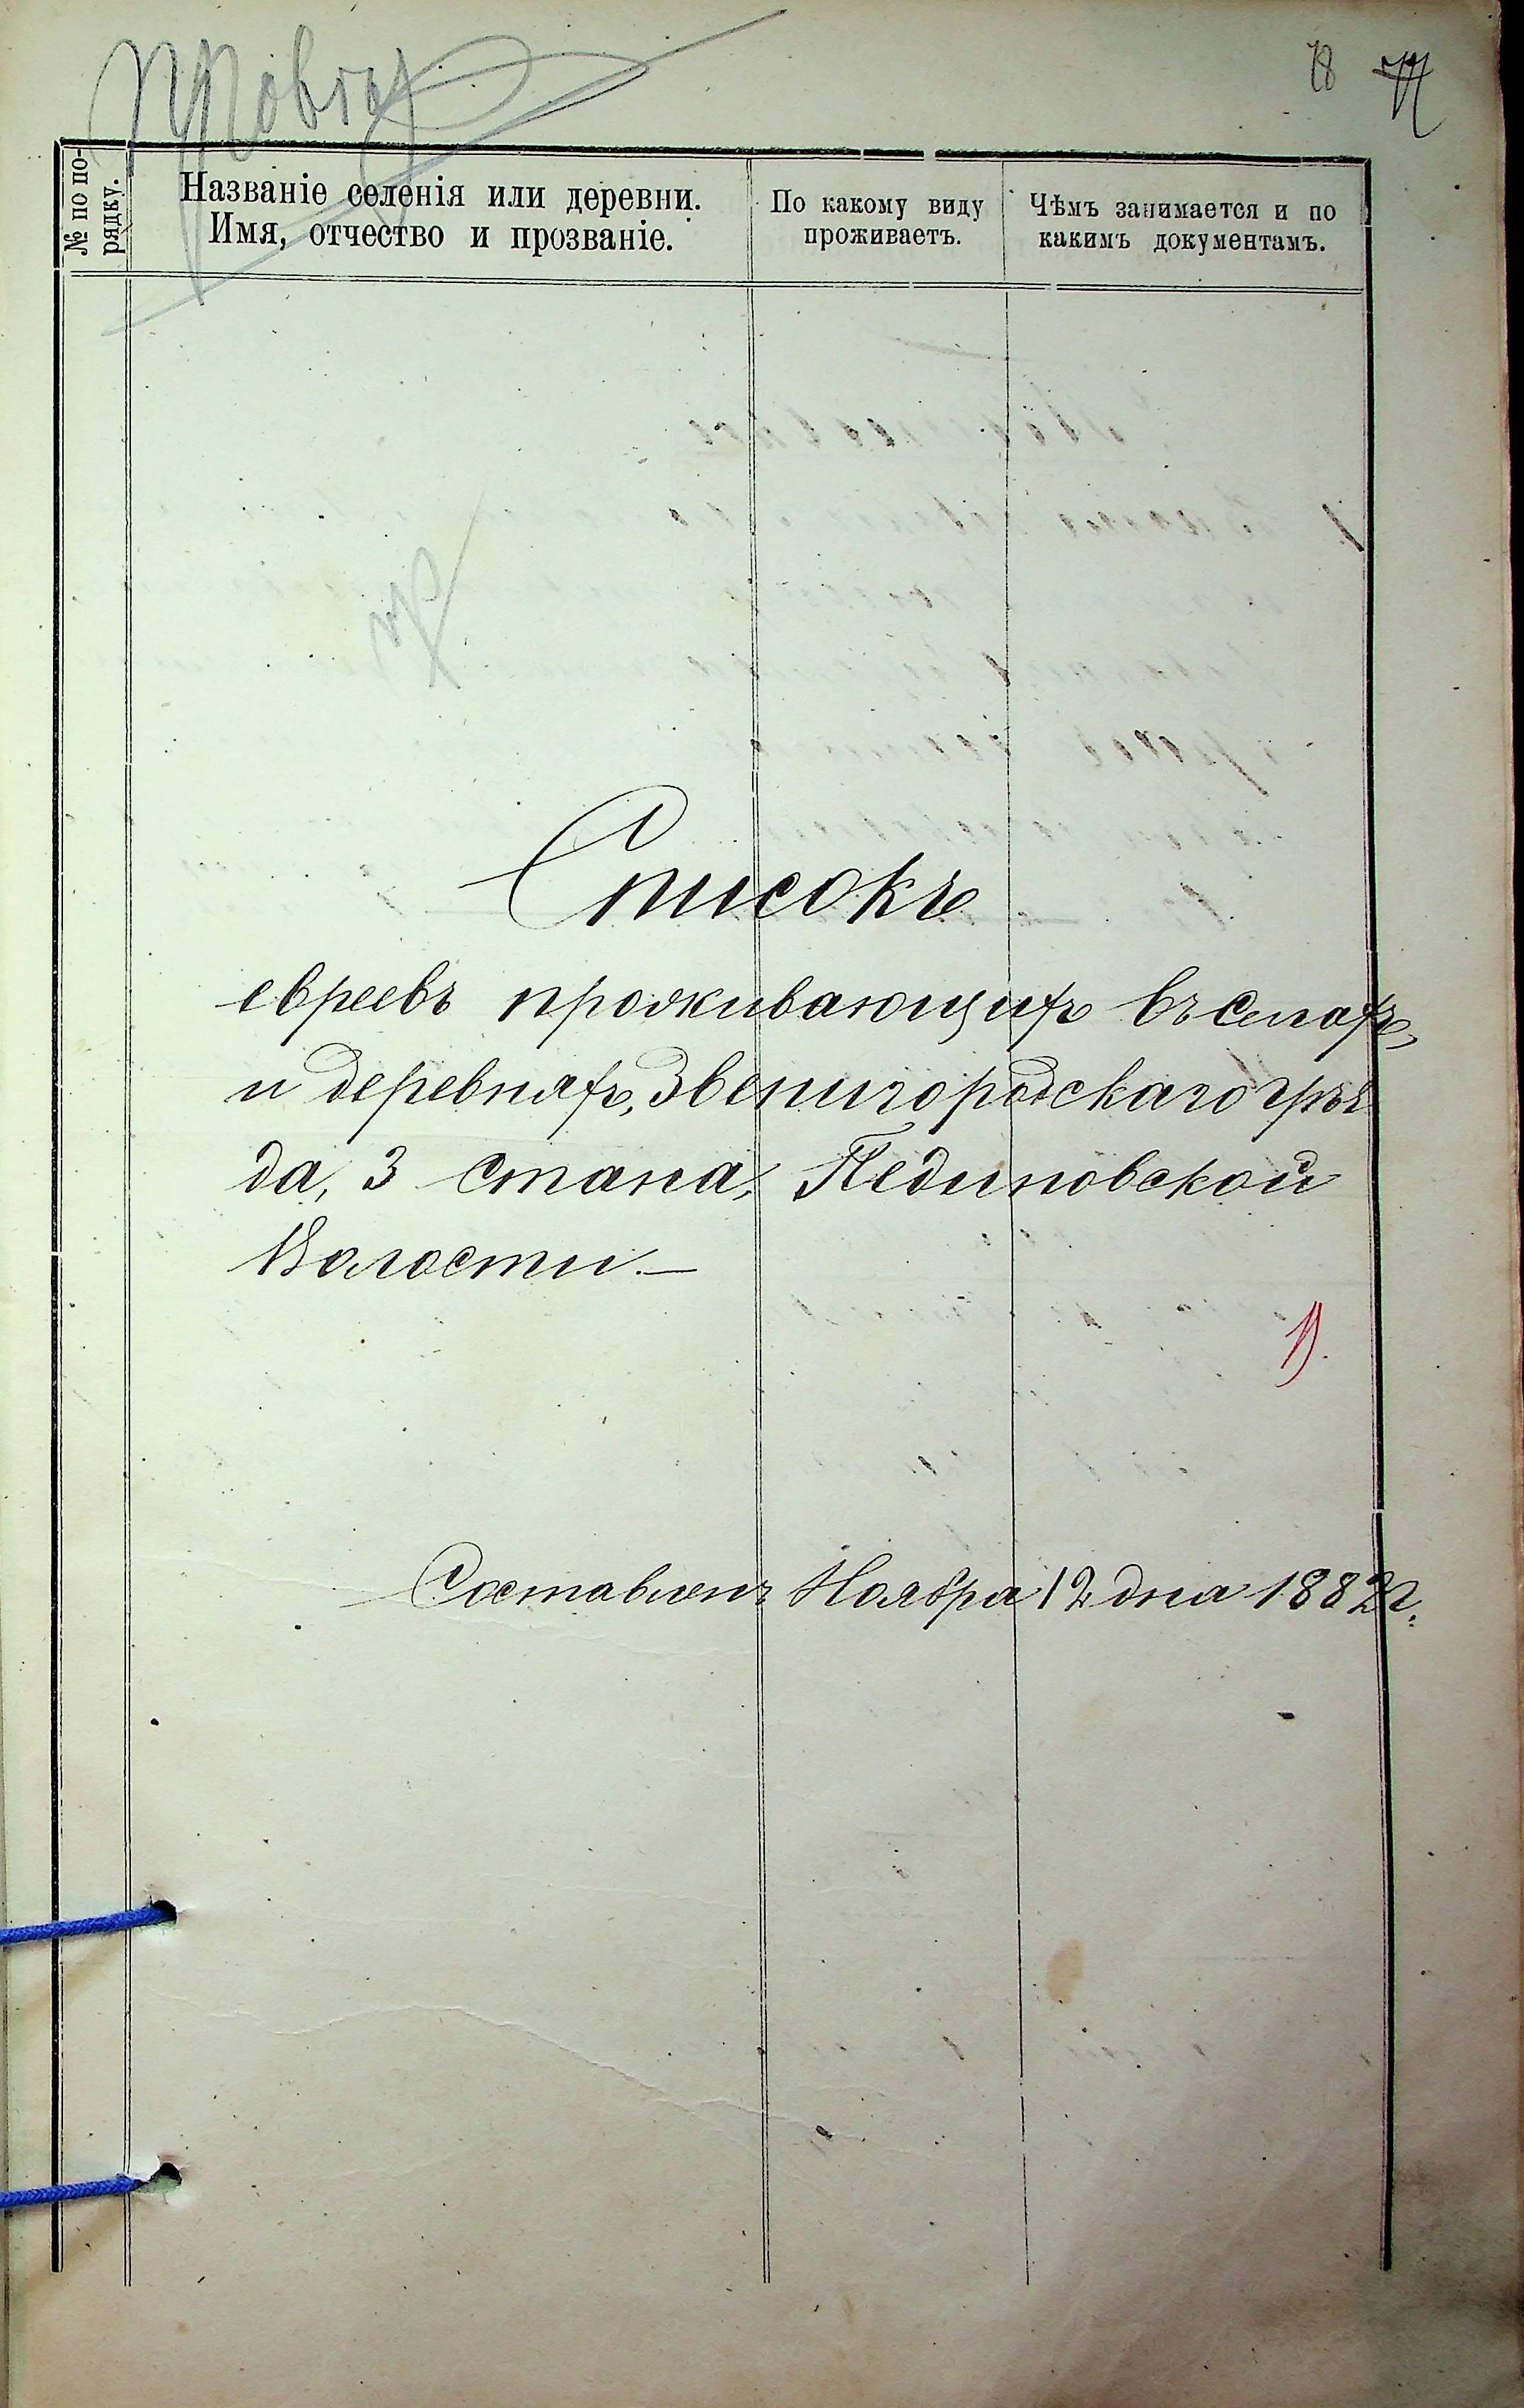 78
№ по по-
рядку.
Названіе селенія или деревни.
Имя, отчество и прозваніе.
По какому виду
проживаетъ.
Чѣмъ занимается и по
какимъ документамъ.
Списокъ
евреевъ проживающихъ въ селахъ,
и деревняхъ, Звенигородскаго уѣз
да, 3 стана, Пединовской
Волости.—
1).
Составленъ Ноября 12 дня 1882 г.